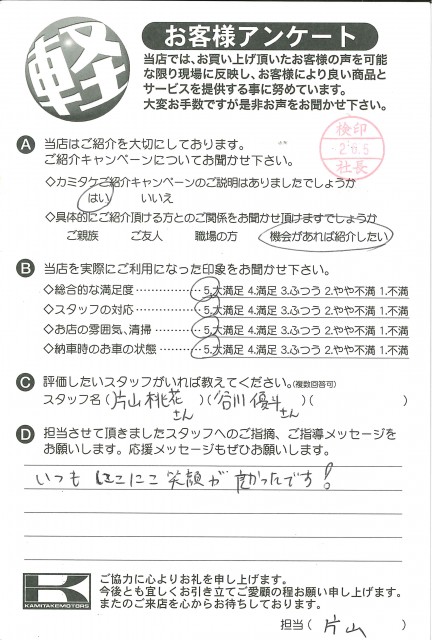 軽
お客様アンケート
当店では、お買い上げ頂いたお客様の声を可能
な限り現場に反映し、お客様により良い商品と
サービスを提供する事に努めています。
大変お手数ですが是非お声をお聞かせ下さい。
検印
-2.6.5
社長
A 当店はご紹介を大切にしております。
ご紹介キャンペーンについてお聞かせ下さい。
◇カミタケご紹介キャンペーンのご説明はありましたでしょうか
はい いいえ
◇具体的にご紹介頂ける方とのご関係をお聞かせ頂けますでしょうか
ご親族 ご友人 職場の方 機会があれば紹介したい
B 当店を実際にご利用になった印象をお聞かせ下さい。
◇総合的な満足度………………5.大満足 4.満足 3.ふつう 2.やや不満 1.不満
◇スタッフの対応………………5.大満足 4.満足 3.ふつう 2.やや不満 1.不満
◇お店の雰囲気、清掃…………5.大満足 4.満足 3.ふつう 2.やや不満 1.不満
◇納車時のお車の状態…………5.大満足 4.満足 3.ふつう 2.やや不満 1.不満
C 評価したいスタッフがいれば教えてください。(複数回答可)
スタッフ名(片山桃花さん)(谷川優斗さん)( )
D 担当させて頂きましたスタッフへのご指摘、ご指導メッセージを
お願いします。応援メッセージもぜひお願いします。
いつも にこにこ 笑顔が 良かったです!
K
KAMITAKEMOTORS
ご協力に心よりお礼を申し上げます。
今後とも宜しくお引き立てご愛顧の程お願い申し上げます。
またのご来店を心からお待ちしております。
担当( 片山 )